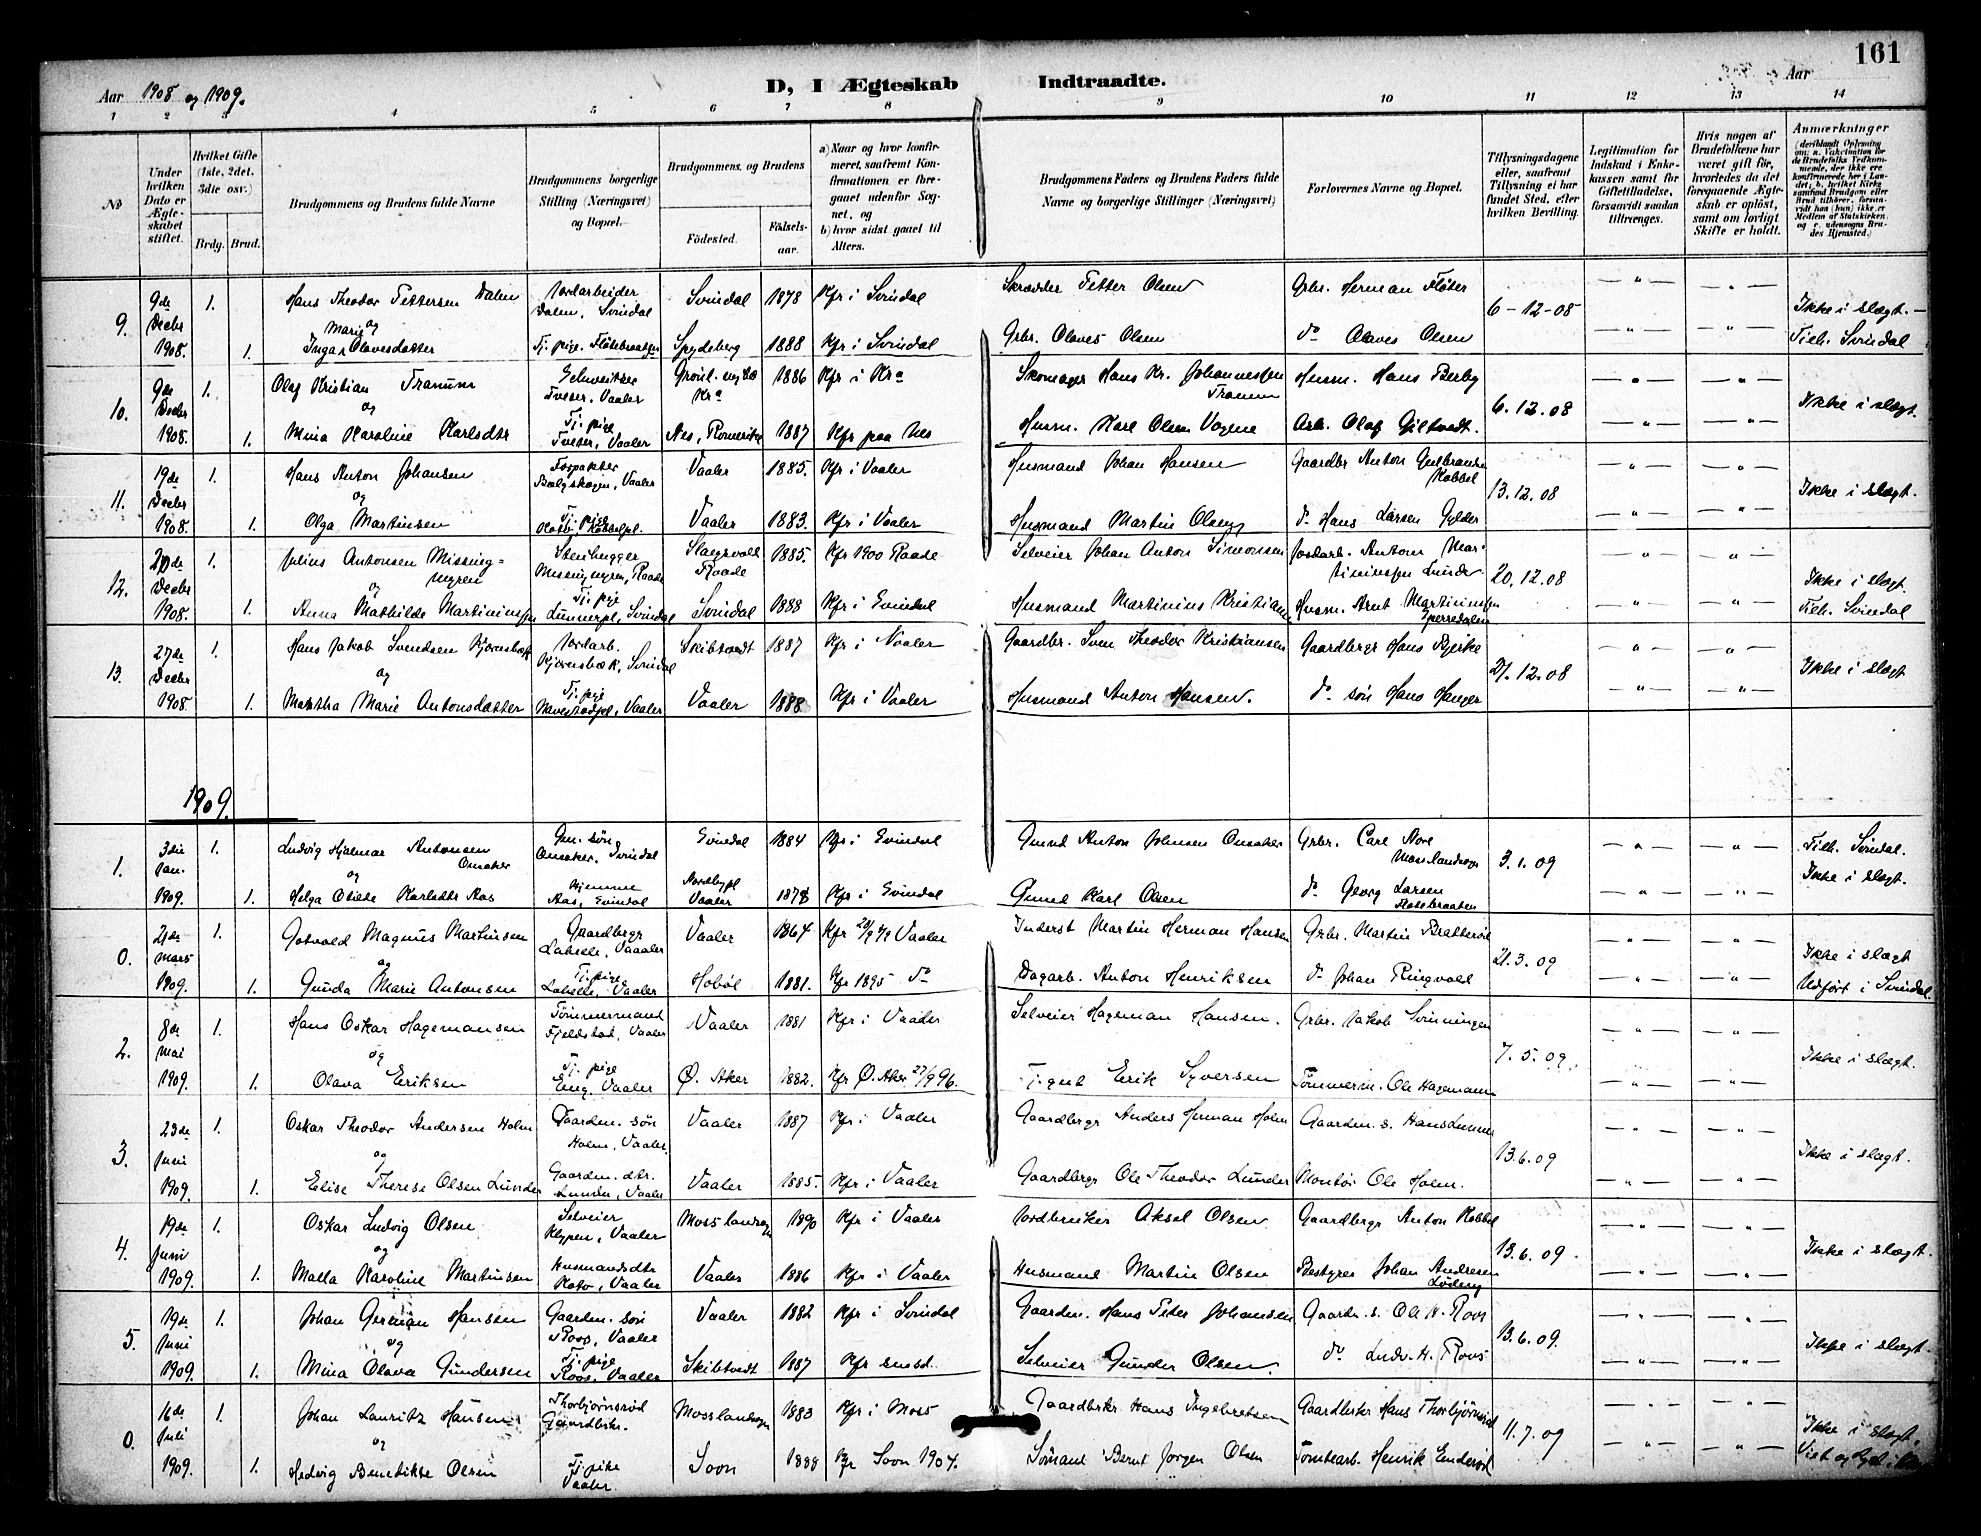 161
Aar 1908 og 1909.
D, I Ægteskab Indtraadte.
Aar
1 2 3 4 5 6 7 8 9 10 11 12 13 14
No
Under hvilken Dato er Ægteskabet stiftet.
Hvilket Gifte (1ste, 2det, 3die osv.)
Brdg. Brud.
Brudgommens og Brudens fulde Navne
Brudgommens borgerlige Stilling (Næringsvei) og Bopæl.
Brudgommens, og Brudens
Fødested. Fødselsaar.
a) Naar og hvor konfirmeret, saafremt Konfirmationen er foregaaet udenfor Sognet, og
b) hvor sidst gaaet til Alters.
Brudgommens Faders og Brudens Faders fulde Navne og borgerlige Stillinger (Næringsvei)
Forlovernes Navne og Bopæl.
Tillysningsdagene eller, saafremt Tillysning ei har fundet Sted, efter hvilken Bevilling.
Legitimation for Indskud i Enkekassen samt for Giftetilladelse, forsaavidt saadan tiltrænges.
Hvis nogen af Brudefolkene har været gift før, hvorledes da det foregaaende Ægteskab er opløst, samt om lovligt Skifte er holdt.
Anmerkninger
9. 9de Decbr 1908. 1. Hans Theodor Pettersen Dalen Jordarbeider Dalen, Svindal Svindal 1878 Kfr i Svindal Skrædder Petter Olsen Grbr. Herman Fløter 6-12-08 Ikke i slægt.
og
1. Inga Marie Olavesdatter Tj. pige. Fløtebraaten Spydeberg 1888 Kfr i Svindal Grbr. Olaves Olsen do Olaves Olsen Tilh. Svindal
10. 9de Decbr 1908. 1. Olaf Kristian Tranum Schweitzer Tveter, Vaaler 1886 Kfr i Kra Skomager Hans Kr. Johannessen Tranum Husm. Hans Berby 6.12.08 Ikke i slægt.
og
1. Mina Karoline Karlsdtr Tj. pige Tveter, Vaaler Nes, Romerike 1887 Kfr paa Nes Husm. Karl Olsen Arb. Olaf Giltvedt.
11. 19de Decbr 1908. 1. Hans Anton Johansen Forpakter Vaaler 1885. Kfr i Vaaler Husmand Johan Hansen Gaardbr Anton Gulbrandsen Kobbel 13.12.08 Ikke i slægt.
og
1. Olga Martinsen Tj. pige Vaaler 1883. Kfr i Vaaler Husmand Martin Olsen do Hans Larsen Gylder
12. 20de Decbr 1908. 1. Julius Antonsen Missingmyren Stenhugger Missingmyren, Raade Slangsvold Raade 1885. Kfr 1900 Raade Selveier Johan Anton Simonsen Jordarb. Anton Martiniussen Lunder 20.12.08 Ikke i slægt.
og
1. Anna Mathilde Martiniussen Tj. pige Lunnerpl, Svindal Svindal 1888 Kfr i Svindal Husmand Martinius Kristiansen Husm. Arnt Martiniussen Tilh. Svindal
13. 27de Decbr 1908 1. Hans Jakob Svendsen Kjørensbæk Jordarb. Kjørensbæk, Svindal Skibtvedt 1887 Kfr i Vaaler Gaardbr. Sven Theodor Kristiansen Gaardbrgr Hans Kjerke 21.12.08 Ikke i slægt
og
1. Martha Marie Antonsdatter Tj. pige Navestadpl, Vaaler Vaaler 1888 Kfr i Vaaler Husmand Anton Hansen. do søn Hans Hanger
1909.
1. 3die Jan. 1909. 1. Ludvig Hjalmar Antonsen Omaker Gm. søn Omaker, Svindal Svindal 1884 Kfr i Svindal Gmd Anton Johnsen Omaker Grbr. Carl Nore Mosslandsogn 3.1.09 Tilh. Svindal.
og
1. Helga Otilde Karlsdtr Aas Hjemme Aas, Svindal Nordbypl Vaaler 1878 Kfr i Svindal Gmd Karl Olsen do Georg Larsen Fløtebraaten Ikke i slægt.
0. 21de Mars 1909. 1. Gotvald Magnus Martinsen Gaardbrgr Vaaler 1864 Kfr Vaaler Inderst Martin Herman Hansen Grbr. Martin Bratterød 21.3.09 Ikke i slægt
og
1. Gunda Marie Antonsen Tj. pige Vaaler Hobøl 1881. Kfr 1895 do Dagarb. Anton Henriksen do Johan Ringvold Udført i Svindal.
2. 8de Mai 1909. 1. Hans Oskar Hagemansen Tømmermand Fjeldstad, Vaaler Vaaler 1881 Kfr i Vaaler Selveier Hageman Hansen. Grbr. Jakob Svinningen 7.5.09. Ikke i slægt.
og
1. Olava Eriksen Tj. pige Eng, Vaaler Ø. Aker 1882. Kfr Ø. Aker 27/9 96. Tj. gut Erik Syversen Tømmerm. Ole Hagemann
3. 23de Juni 1909. 1. Oskar Theodor Andersen Holm Gaardm. søn Holm, Vaaler Vaaler 1887 Kfr i Vaaler Gaardbrgr Anders Herman Holm Gaardm. s. Hans Lunder 13.6.09 Ikke i slægt.
og
1. Elise Therese Olsen Lunder Gaardm. dtr. Lunder, Vaaler Vaaler 1885. Kfr i Vaaler Gaardbrgr Ole Theodor Lunder Montør Ole Holm.
4. 19de Juni 1909. 1. Oskar Ludvig Olsen Selveier Klypen, Vaaler Mosslandsogn 1890 Kfr i Vaaler Jordbruker Aksel Olsen Gaardbrgr Anton Kobbel 13.6.09. Ikke i slægt.
og
1. Malla Karoline Martinsen Husmandsdtr Vaaler Vaaler 1886 Kfr i Vaaler Husmand Martin Olsen Bestyrer Johan Andresen
5. 19de Juni 1909. 1. Johan German Hansen Gaardm. søn Roos, Vaaler Vaaler 1882 Kfr i Svindal Gaardm. Hans Peter Johansen Gaardm. s. Ole H. Roos 13.6.09. Ikke i slægt.
og
1. Mina Olava Gundersen Tj. pige Roos, Vaaler Skibtvedt 1887 Kfr smsd. Selveier Gunder Olsen. do Ludv. H. Roos
0. 16de Juli 1909. 1. Johan Lauritz Hansen Thorbjørnsrød Gaardbrkr. Mosslandsogn 1883 Kfr i Moss Gaardbrkr Hans Ingebretsen Gaardbrker Hans Thorbjørnsrød 11.7.09 Ikke i slægt.
og
1. Hedvig Benedikte Olsen Tj. pike Vaaler Soon 1888 Kfr Soon 1904. Sømand Bernt Jørgen Olsen Tomtearb. Henrik Enderød